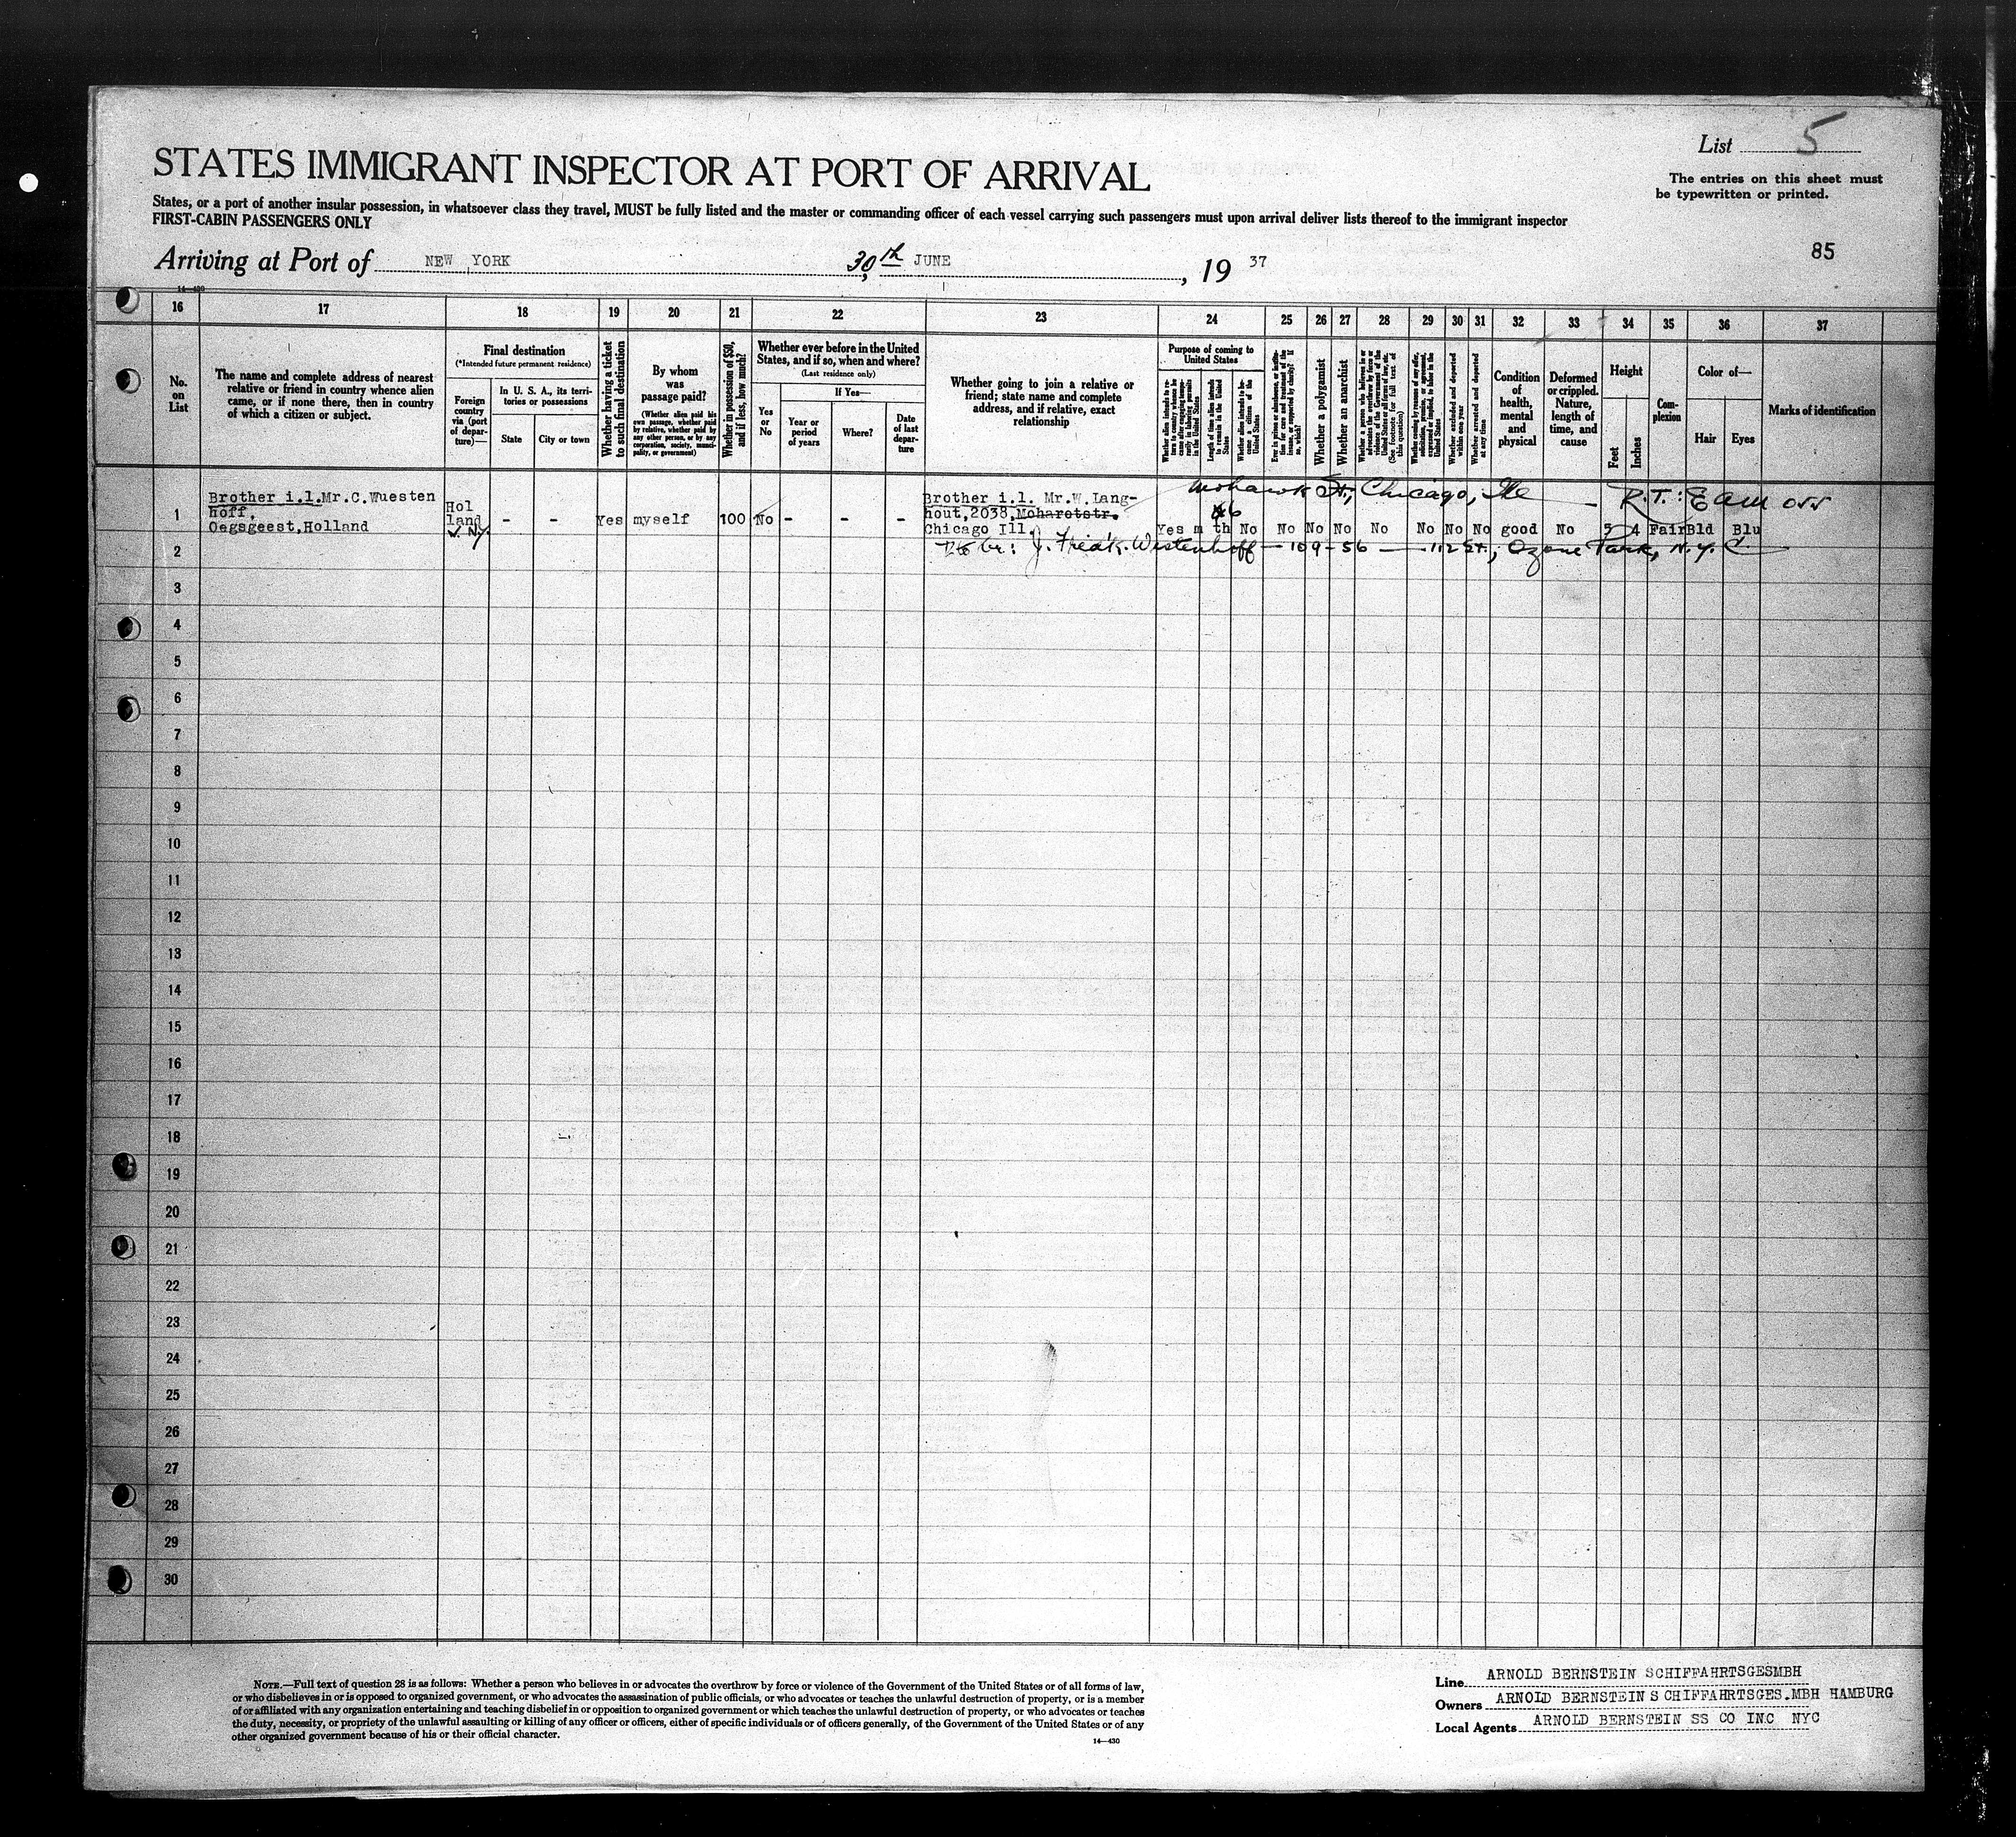 List 5
STATES IMMIGRANT INSPECTOR AT PORT OF ARRIVAL
The entries on this sheet must
be typewritten or printed.
States, or a port of another insular possession, in whatsoever class they travel, MUST be fully listed and the master or commanding officer of each vessel carrying such passengers must upon arrival deliver lists thereof to the immigrant inspector
FIRST-CABIN PASSENGERS ONLY
85
Arriving at Port of NEW YORK 30th JUNE, 19 37
14—430
16 17 18 19 20 21 22 23 24 25 26 27 28 29 30 31 32 33 34 35 36 37
No.
on
List
The name and complete address of nearest
relative or friend in country whence alien
came, or if none there, then in country
of which a citizen or subject.
Final destination
(*Intended future permanent residence)
Foreign
country
via (port
of depar-
ture)—
In U. S. A., its terri-
tories or possessions
State
City or town
Whether having a ticket
to such final destination
By whom
was
passage paid?
(Whether alien paid his
own passage, whether paid
by relative, whether paid by
any other person, or by any
corporation, society, munici-
pality, or government)
Whether in possession of $50,
and if less, how much?
Whether ever before in the United
States, and if so, when and where?
(Last residence only)
Yes
or
No
If Yes—
Year or
period
of years
Where?
Date
of last
depar-
ture
Whether going to join a relative or
friend; state name and complete
address, and if relative, exact
relationship
Purpose of coming to
United States
Whether alien intends to re-
turn to country whence he
came after engaging tempo-
rarily in laboring pursuits
in the United States
Length of time alien intends
to remain in the United
States
Whether alien intends to be-
come a citizen of the
United States
Ever in prison or almshouse, or institu-
tion for care and treatment of the
insane, or supported by charity? If
so, which?
Whether a polygamist
Whether an anarchist
Whether a person who believes in or
advocates the overthrow by force or
violence of the Government of the
United States or all forms of law, etc.
(See footnote for full text of
this question)
Whether coming by reason of any offer,
solicitation, promise, or agreement,
expressed or implied, to labor in the
United States
Whether excluded and deported
within one year
Whether arrested and deported
at any time
Condition
of
health,
mental
and
physical
Deformed
or crippled.
Nature,
length of
time, and
cause
Height
Feet
Inches
Com-
plexion
Color of—
Hair
Eyes
Marks of identification
Mohawk St., Chicago, Ill — R.T.:
1
Brother i.l.Mr.C.Wuesten
hoff,
Oegsgeest,Holland
Hol
land
v. N.Y.
- - Yes myself 100 No - - -
Brother i.l. Mr.W.Lang-
hout,2038,Moharetstr.
Chicago Ill.
6
Yes m th No No No No No No No No good No 5 4 Fair Bld Blu
2
br: J. Fredk. Westenhoff — 109-56 — 112 St., Ozone Park, N.Y.C.
3
4
5
6
7
8
9
10
11
12
13
14
15
16
17
18
19
20
21
22
23
24
25
26
27
28
29
30
NOTE.—Full text of question 28 is as follows: Whether a person who believes in or advocates the overthrow by force or violence of the Government of the United States or of all forms of law,
or who disbelieves in or is opposed to organized government, or who advocates the assassination of public officials, or who advocates or teaches the unlawful destruction of property, or is a member
of or affiliated with any organization entertaining and teaching disbelief in or opposition to organized government or which teaches the unlawful destruction of property, or who advocates or teaches
the duty, necessity, or propriety of the unlawful assaulting or killing of any officer or officers, either of specific individuals or of officers generally, of the Government of the United States or of any
other organized government because of his or their official character.
14—430
Line ARNOLD BERNSTEIN SCHIFFAHRTSGESMBH
Owners ARNOLD BERNSTEIN SCHIFFAHRTSGES.MBH HAMBURG
Local Agents ARNOLD BERNSTEIN SS CO INC NYC